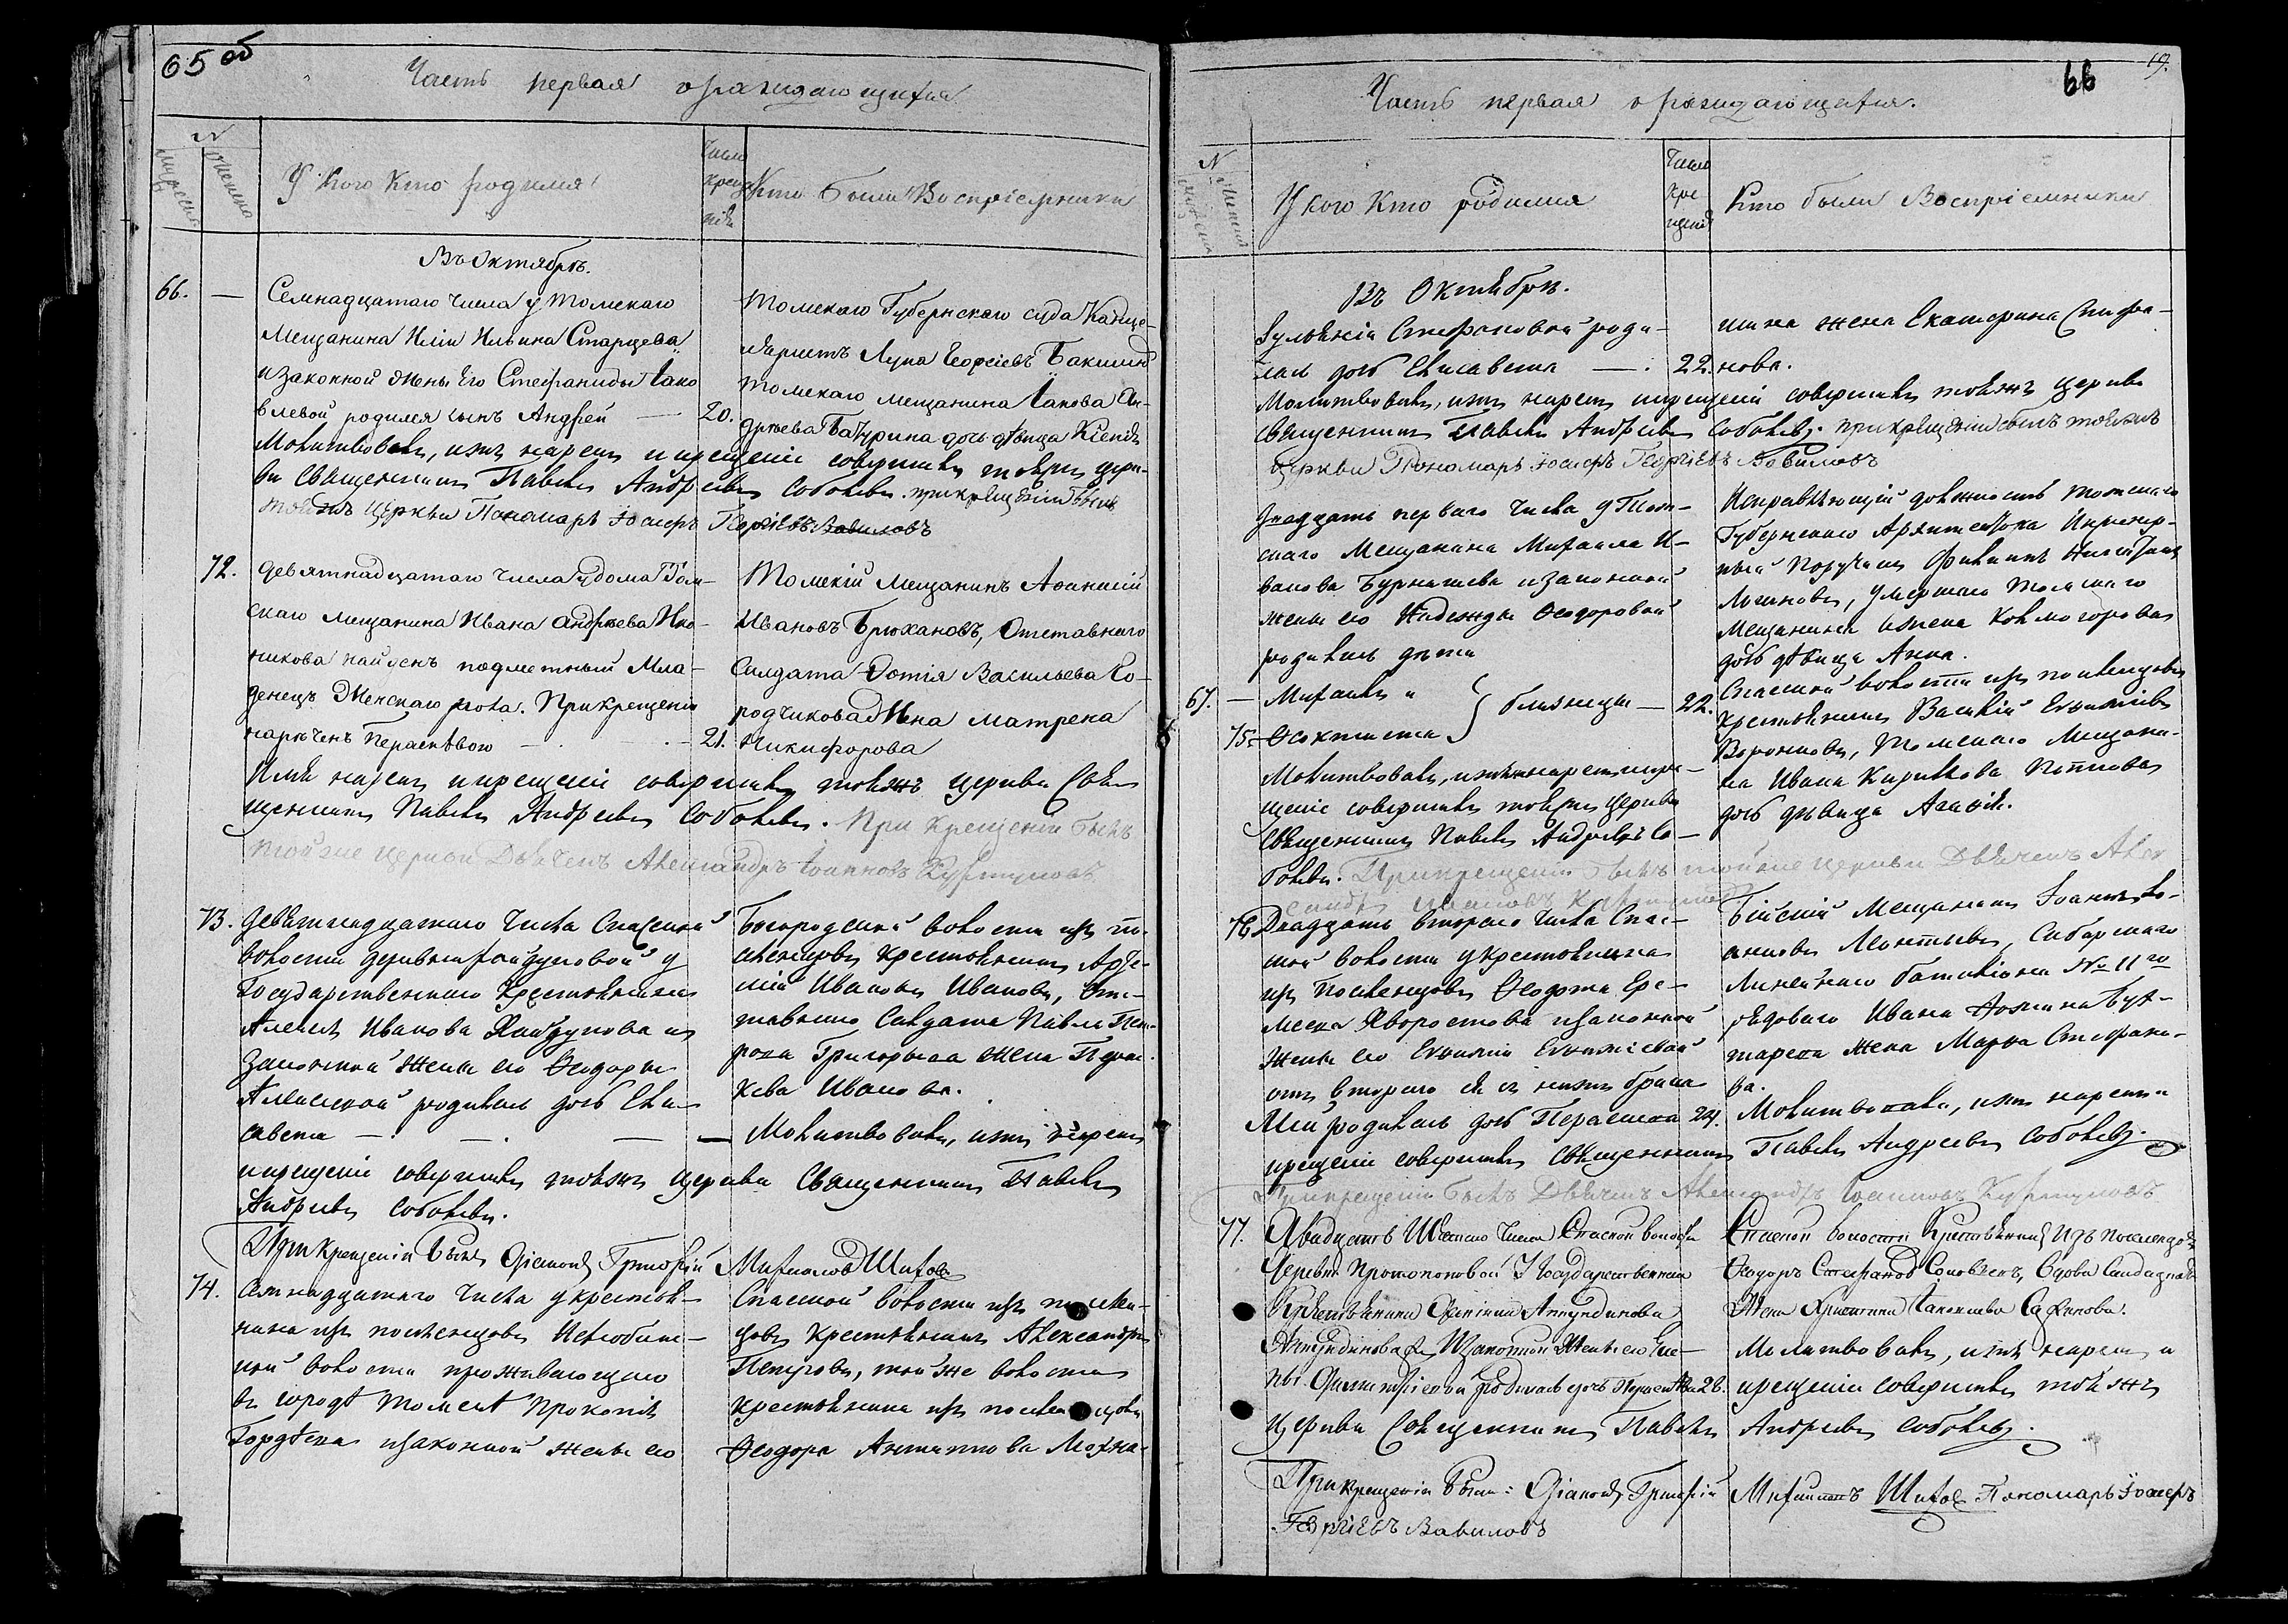 65 об
Часть первая о раждающихся
N
мужеска
женска
У кого кто родился
Число крещенія
Кто были Воспріемники
Въ Октябрѣ.
66. — Семнадцатаго числа у Томскаго
Мещанина Иліи Ильина Старцева
и законной жены его Стефаниды Іако
влевой родился сынъ Андрей — 20.
Томскаго Губернскаго суда Канце-
ляристъ Лука Георгіевъ Бакшинъ
Томскаго мещанина Іакова Ан-
дреева Батурина дочь дѣвица Ксенія
Молитвовалъ, имя нарекъ и крещеніе совершилъ тояжъ церк-
ви Священникъ Павелъ Андреевъ Соболевъ. при крещеніи былъ
тояжъ Церкви Пономарь Іосифъ Георгіевъ Вавиловъ
72. Девятнадцатаго числа у дома Том-
скаго мещанина Ивана Андреева Ико-
никова найденъ подметный Мла-
денецъ Женскаго пола. При крещеніи
нареченъ Параскевою — 21.
Томскій Мещанинъ Аѳанасій
Ивановъ Брюхановъ, Отставнаго
Солдата Фотія Васильева Го-
родчикова Жена Матрена
Никифорова
Имя нарекъ и крещеніе совершилъ тояжъ церкви Свя-
щенникъ Павелъ Андреевъ Соболевъ. При крещеніи былъ
тойже церкви Дьячекъ Александръ Іоанновъ
73. Девятнадцатаго числа Спасской
волости деревни Хайдуковой у
Государственнаго Крестьянина
Алексѣя Иванова Хайдукова и
законной жены его Ѳеодоры
родилась дочь Ели-
савета — . — . —
Богородской волости изъ по-
селенцовъ крестьянинъ Арсе-
ній Ивановъ Ивановъ, Отс-
тавнаго Солдата Павла Пет-
рова Григорьева жена Парас-
кева Иванова.
Молитвовалъ, имя нарекъ
и крещеніе совершилъ тояжъ церкви Священникъ Павелъ
Андреевъ Соболевъ.
При Крещеніи былъ Діаконъ Григорій Михаиловъ Шиховъ
74. Семнадцатаго числа у крестья-
нина изъ поселенцовъ Нелюбин-
ской волости проживающаго
въ городѣ Томскѣ Прокопія
Гордѣева и законной жены его
Спасской волости изъ поселен-
цовъ крестьянинъ Александръ
Петровъ, той же волости
крестьянина изъ поселенцовъ
Ѳеодора Антипова Мохна-
66
19.
Часть первая о раждающихся.
N
мужеска
женска
У кого кто родился
Число крещеній
Кто были Воспріемники
Въ Октябрѣ.
Іуліаніи Стефановой роди-
лась дочь Елисавета — . 22.
шина жена Екатерина Стефа-
нова.
Молитвовалъ, имя нарекъ и крещеніе совершилъ тояжъ церкви
Священникъ Павелъ Андреевъ Соболевъ. при крещеніи былъ тояжъ
Церкви Пономарь Іосифъ Георгіевъ Вавиловъ
Двадцать перваго числа у Том-
скаго Мещанина Михаила И-
ванова Бурнашева и законной
жены его Надежды Ѳеодоровой
родились дѣти
67. — Михаилъ и
75. — Ѳеоктиста } близнецы — 22.
Исправляющій должность Томскаго
Губернскаго Архитектора Инженер-
ный Поручикъ Филиппъ
Логиновъ, умершаго Томскаго
Мещанина Колмогорова
дочь дѣвица Анна.
Спасской волости изъ поселенцовъ
крестьянинъ Василій Евфиміевъ
Вороновъ, Томскаго Мещани-
на Ивана Кирилова Попова
дочь дѣвица Агаѳія.
Молитвовалъ, имя нарекъ и кре-
щеніе совершилъ тояжъ Церкви
Священникъ Павелъ Андреевъ Со-
болевъ. При крещеніи былъ тойже церкви Дьячекъ Алек
сандръ Іоанновъ
76. Двадцать втораго числа Спас-
ской волости у крестьянина
изъ поселенцовъ Ѳеодота Ере-
меева Хворостова и законной
жены его Евфиміи Евфиміевой
отъ втораго ея съ нимъ брака
родилась дочь Параскева 24.
Бійскій Мещанинъ Іоаннъ Іо-
анновъ Леонтьевъ, Сибирскаго
Линейнаго баталіона № 11го
рядоваго Ивана
жена Марѳа Стефано-
ва.
Молитвовалъ, имя нарекъ и
крещеніе совершилъ Священникъ Павелъ Андреевъ Соболевъ.
При крещеніи былъ Дьячекъ Александръ Іоанновъ
77. Двадцать Шестаго числа Спаской волости
Деревни Протопоповой У Государственнаго
Крестьянина Анкундинова
Анкундинова и Законной Жены его Еле-
ны Димитріевой родилась дочь Параскева 26.
Спаской волости Крестьянинъ Изъ поселенцовъ
Ѳеодоръ Стефановъ Соловьевъ, Вдова Солдатская
Жена Христина Іаковлева
Молитвовалъ, имя нарекъ и
крещеніе совершилъ тояжъ
Церкви Священникъ Павелъ Андреевъ Соболевъ.
При крещеніи были: Діаконъ Григорій Михаиловъ Шиховъ Пономарь Іосифъ
Георгіевъ Вавиловъ